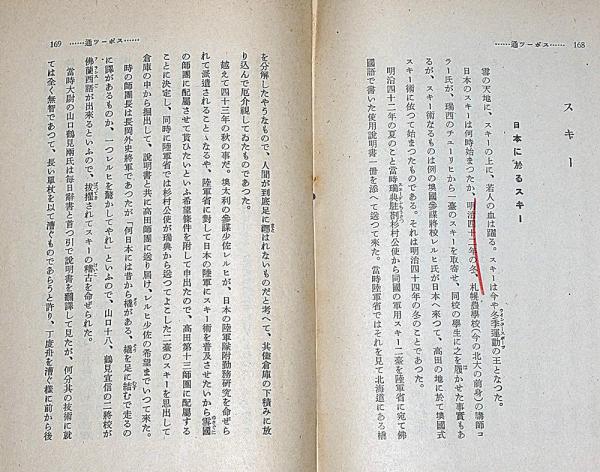 168
……スポーツ通……
スキー
日本に於るスキー
雪の天地に、スキーの上に、若人の血は躍る。スキーは今や冬季運動の王となつた。
日本のスキーは何時始まつたか、明治四十二年の冬、札幌農學校(今の北大の前身)の講師コ
ラー氏が、瑞西のチューリヒから一臺のスキーを取寄せ、同校の學生に之を履かせた事實もあ
るが、スキー術なるものは例の墺國參謀將校レルヒ氏が日本へ來つて、高田の地に於て墺國式
スキー術に依つて始まつたものである。それは明治四十四年の冬のことであつた。
明治四十二年の夏のこと當時瑞典駐剳杉村公使から同國の軍用スキー二臺を陸軍省に宛て佛
國語で書いた使用說明書一冊を添へて送つて來た。當時陸軍省ではそれを見て北海道にある橇
169
……スポーツ通……
を分解したやうなもので、人間が到底足に躡はれないものだと考へて、其儘倉庫の下積みに放
り込んで厄介視してゐたものであつた。
越えて四十三年の秋の事だ。墺太利の參謀少佐レルヒが、日本の陸軍隊附勤務硏究を命ぜら
れて派遣されることゝなるや、陸軍省に對して日本の陸軍にスキー術を普及させたいから雪國
の師團に配屬させて貰ひたいといふ希望條件を附して申出たので、高田第十三師團に配屬する
ことに決定し、同時に陸軍省では杉村公使が瑞典から送つてよこした二臺のスキーを思出して
倉庫の中から掘出して、說明書と共に高田師團に送り屆け、レルヒ少佐の希望までいつて來た。
時の師團長は長岡外史將軍であつたが「何日本には昔から橇がある、橇を足に結むで走るの
に譯があるものか、一つレルヒを驚かしてやれ」といふので、山口十八、鶴見宜信の二將校が
佛蘭西語が出來るといふので、拔擢されてスキーの稽古を命ぜられた。
當時大尉の山口鶴見兩氏は每日辭書と首つ引で說明書を翻譯して見たが、何分其の技術に就
ては全く無智であつて、長い單杖を以て漕ぐものであらうと許り、丁度舟を漕ぐ樣に前から後